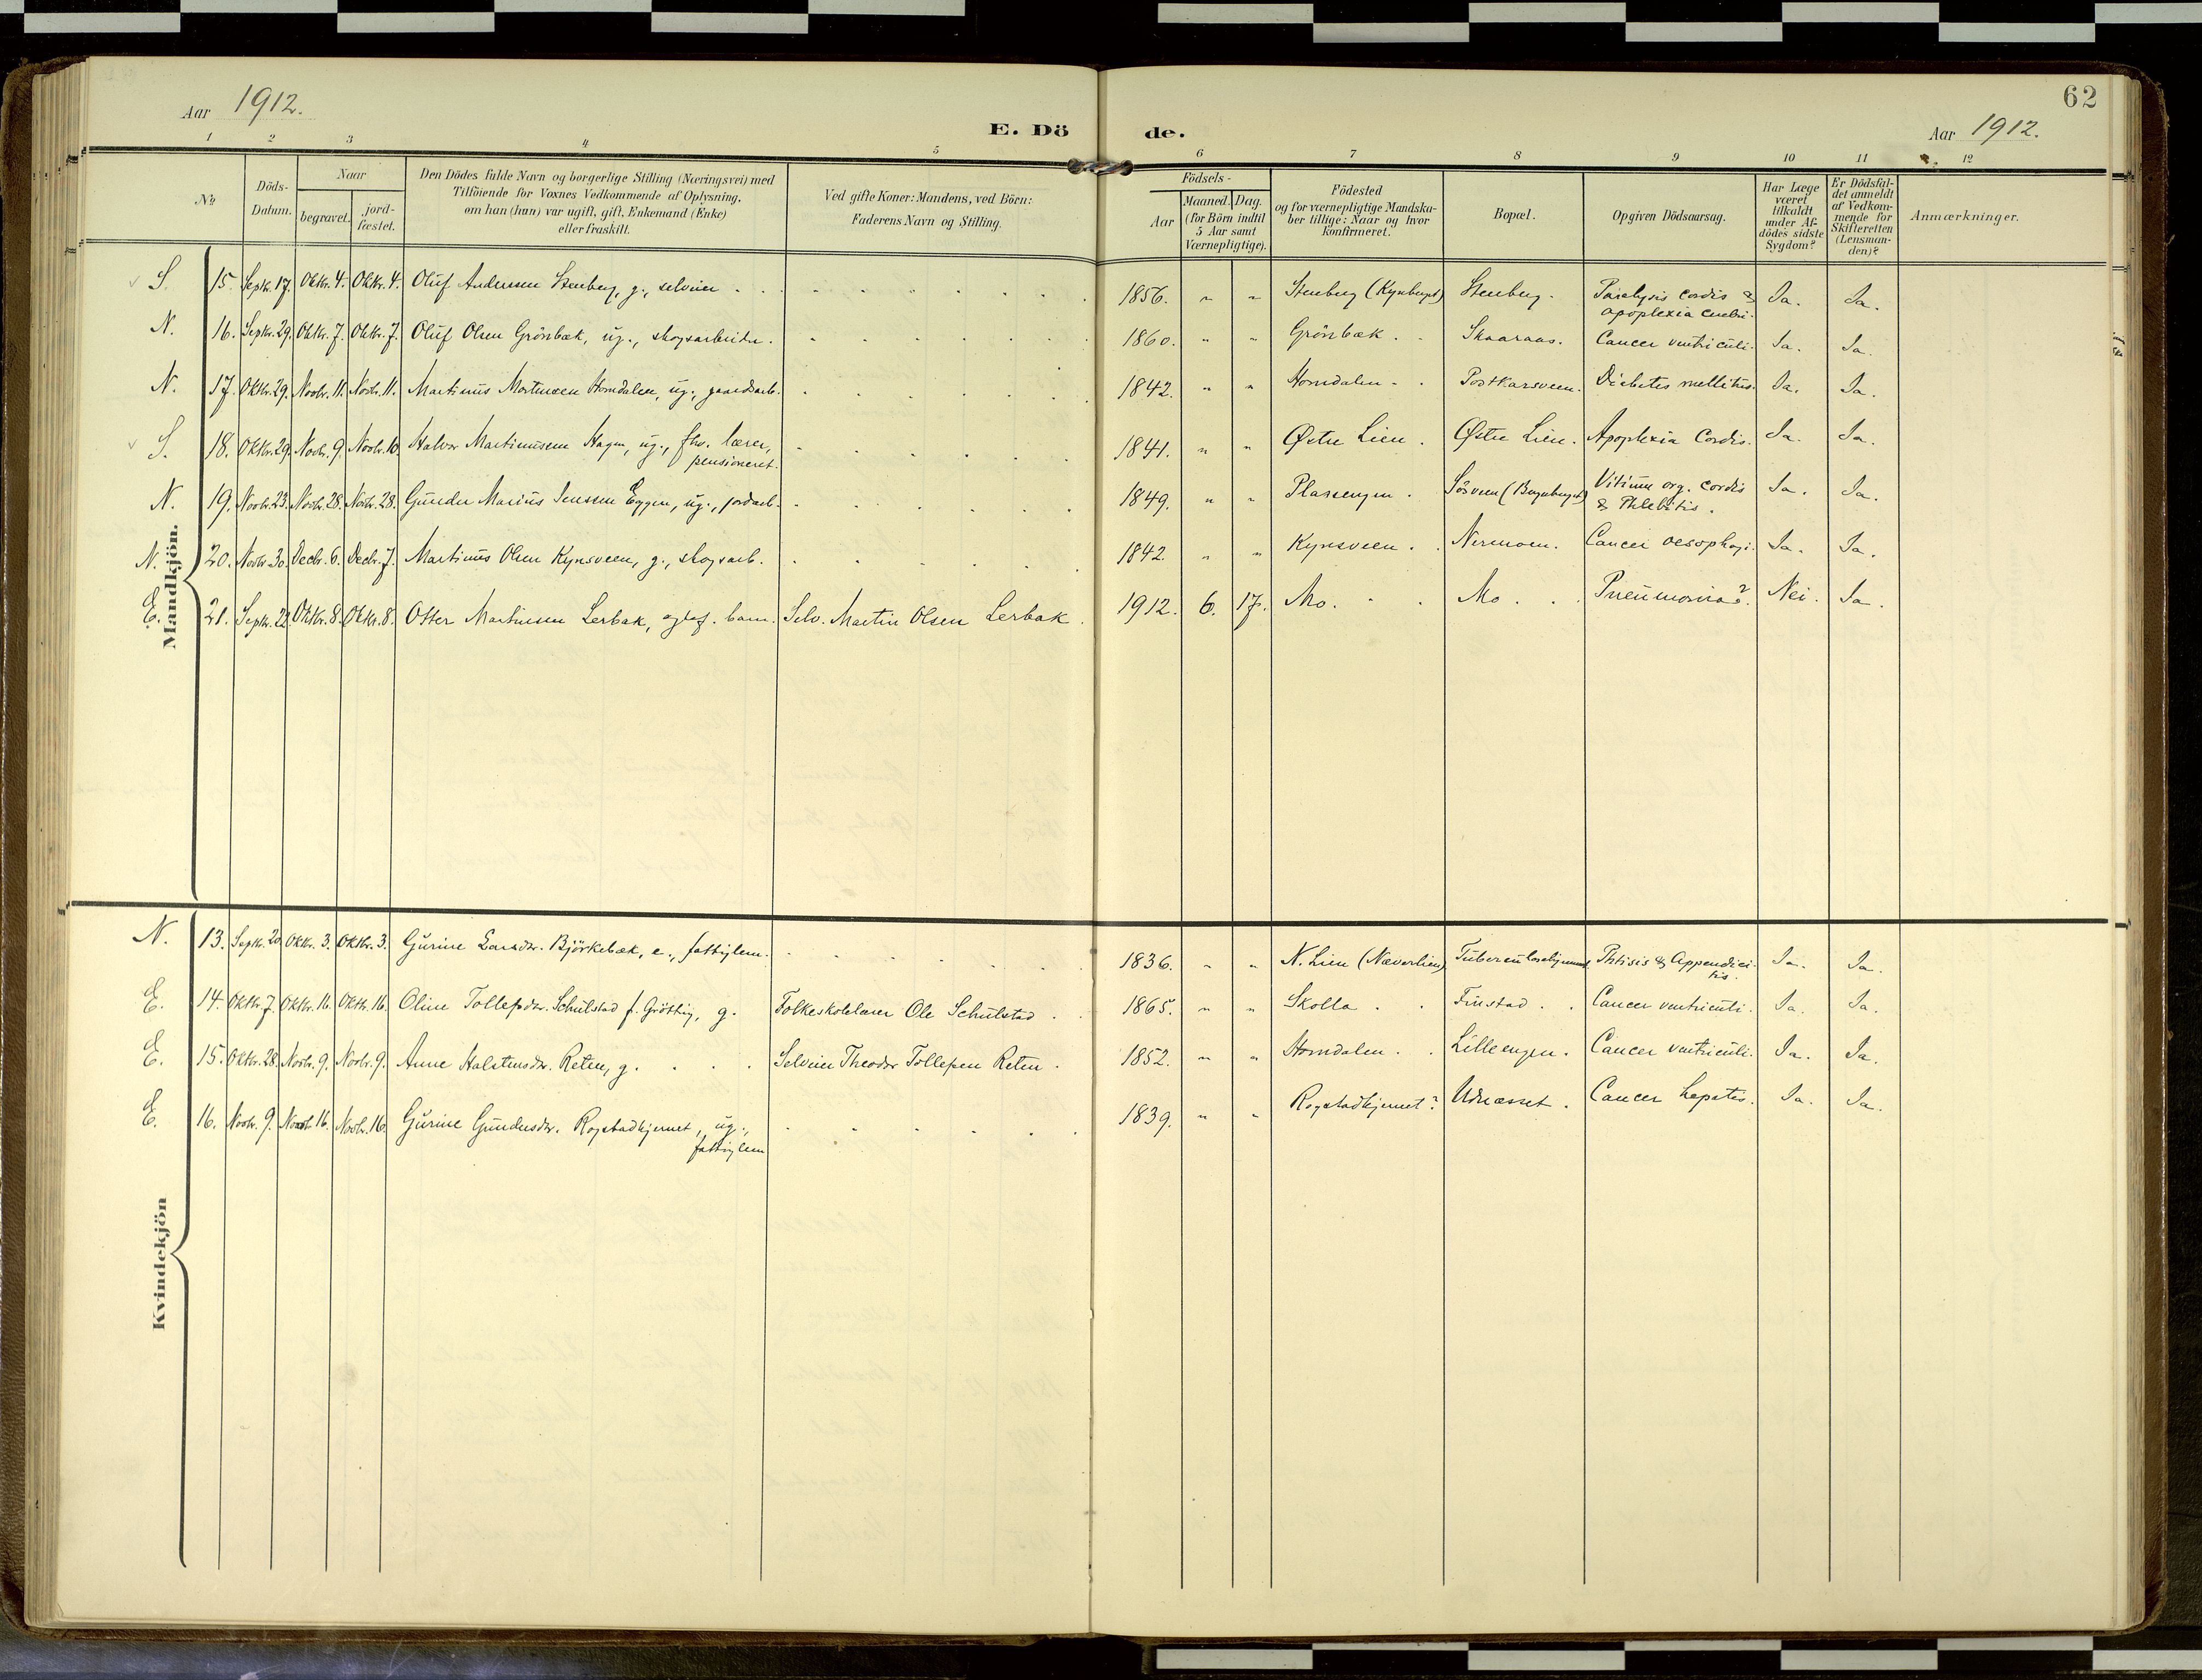 62
Aar 1912.
E. Dö
de.
Aar 1912.
1 2 3 4 5 6 7 8 9 10 11 12
№
Döds-
Datum.
Naar
begravet.
jord-
fæstet.
Den Dödes fulde Navn og borgerlige Stilling (Næringsvei) med
Tilföiende for Voxnes Vedkommende af Oplysning,
om han (hun) var ugift, gift, Enkemand (Enke)
eller fraskilt.
Ved gifte Koner: Mandens, ved Börn:
Faderens Navn og Stilling.
Födsels-
Aar
Maaned. Dag.
(for Börn indtil
5 Aar samt
Værnepligtige).
Födested
og for værnepligtige Mandska-
ber tillige: Naar og hvor
konfirmeret.
Bopæl.
Opgiven Dödsaarsag.
Har Læge
været
tilkaldt
under Af-
dödes sidste
Sygdom?
Er Dödsfal-
det anmeldt
af Vedkom-
mende for
Skifteretten
(Lensman-
den)?
Anmærkninger.
Mandkjön.
S. 15. Septr. 17. Oktbr. 4. Oktbr. 4. Oluf Andersen Stenberg, g., selveier 1856. " " Stenberg Stenberg. Paralysis cordis & Ja. Ja.
apoplexia
N. 16. Septr. 29. Oktbr. 7. Oktbr. 7. Oluf Olsen Grönbæk, ug., skogsarbeider. 1860. " " Grönbæk. Skaaraas. Cancer ventriculi. Ja. Ja.
N. 17. Oktbr. 29. Novbr. 11. Novbr. 11. Martinus Mortensen Homdalen, ug., gaardsarb. 1842. " " Homdalen. Postkarsveen. Diabetes mellitus. Ja. Ja.
S. 18. Oktbr. 29. Novbr. 9. Novbr. 10. Halvor Martinusen Hagen, ug., fhv. lærer, 1841. " " Østre Lien. Østre Lien. Apoplexia Cordis. Ja. Ja.
pensioneret.
N. 19. Novbr. 23. Novbr. 28. Novbr. 28. Gunder Marius Jenssen Eggen, ug., jordarb. 1849. " " Plassengen. Vitium org. cordis Ja. Ja.
& Phlebitis.
N. 20. Novbr. 30. Decbr. 6. Decbr. 7. Martinus Olsen Kynsveen, g., skogsarb. 1842. " " Kynsveen. Nermoen. Cancer oesophagi. Ja. Ja.
E. 21. Septr. 22. Oktbr. 8. Oktbr. 8. Otter Martinsen Lerbak, ægtef. barn. Selv. Martin Olsen Lerbak. 1912. 6. 17. Mo. Mo. Pneumonia? Nei. Ja.
Kvindekjön
N. 13. Septr. 20. Oktbr. 3. Oktbr. 3. Gurine Larsdtr. Björkebæk, e., fattiglem. 1836. " " N. Lien (Næverlien) Tuberculosehjemmet Phtisis & Appendici- Ja. Ja.
tis.
E. 14. Oktbr. 7. Oktbr. 16. Oktbr. 16. Oline Tollefsdtr. Schulstad f. Gröttig, g. Folkeskolelærer Ole Schulstad. 1865. " " Skolla. Finstad. Cancer ventriculi. Ja. Ja.
E. 15. Oktbr. 28. Novbr. 9. Novbr. 9. Anne Halstensdtr. Reten, g. Selveier Theodor Tollefsen Reten. 1852. " " Homdalen. Lilleengen. Cancer ventriculi. Ja. Ja.
E. 16. Novbr. 9. Novbr. 16. Novbr. 16. Gurine Gundersdtr. Rogstadkjernet, ug., 1839. " " Rogstadkjernet? Udnæsset. Cancer hepatis. Ja. Ja.
fattiglem